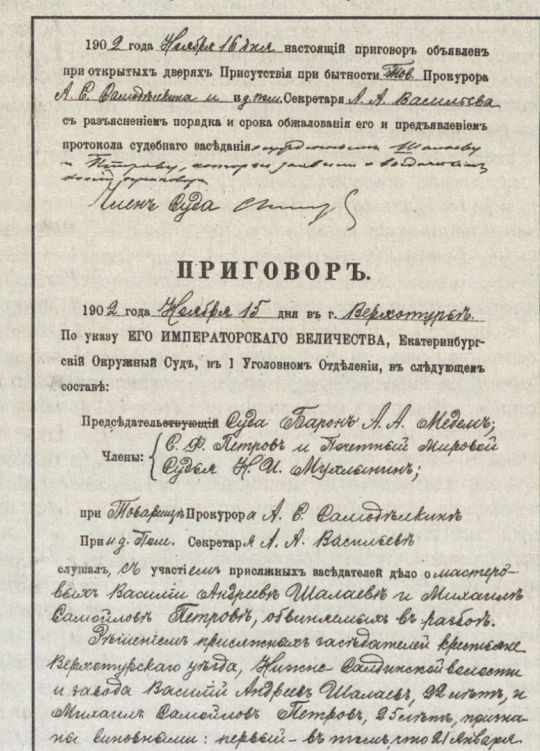 1902 года Ноября 16 дня настоящій приговоръ объявленъ
при открытыхъ дверяхъ Присутствія при бытности Тов. Прокурора
А. Е. Самодѣлкина и и. д. пом. Секретаря А. А. Васильева
съ разъясненіемъ порядка и срока обжалованія его и предъявленіемъ
протокола судебнаго засѣданія осужденнымъ Шалаеву
и Петрову, которые заявили о
Членъ Суда
ПРИГОВОРЪ.
1902 года Ноября 15 дня въ г. Верхотурьѣ.
По указу ЕГО ИМПЕРАТОРСКАГО ВЕЛИЧЕСТВА, Екатеринбург-
скій Окружный Судъ, въ I Уголовномъ Отдѣленіи, въ слѣдующемъ
составѣ:
Предсѣдательствующій Суда Баронъ А. А. Медемъ;
Члены: С. Ф. Петровъ и Почетный Мировой
Судья Н. И. Мухлынинъ;
при Товарищѣ Прокурора А. Е. Самодѣлкинѣ
При и. д. Пом. Секретаря А. А. Васильевѣ
слушалъ, съ участіемъ присяжныхъ засѣдателей дѣло о мастеро-
выхъ Василіи Андреевѣ Шалаевѣ и Михаилѣ
Самойловѣ Петровѣ, обвиняемыхъ въ разбоѣ.
Рѣшеніемъ присяжныхъ засѣдателей крестьяне
Верхотурскаго уѣзда, Нижне-Салдинской волости
и завода Василій Андреевъ Шалаевъ, 22 лѣтъ, и
Михаилъ Самойловъ Петровъ, 25 лѣтъ, призна-
ны виновными: первый - въ томъ, что 21 Января